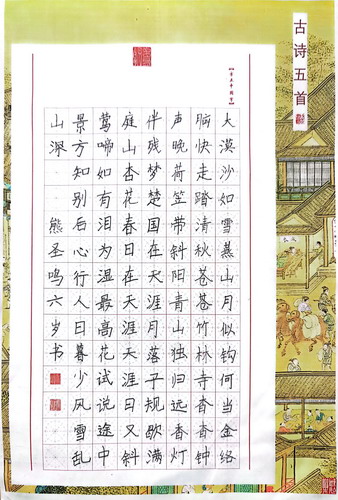 古诗五首
大漠沙如雪燕山月似钩何当金络
脑快走踏清秋苍苍竹林寺杳杳钟
声晚荷笠带斜阳青山独归远香灯
伴残梦楚国在天涯月落子规歇满
庭山杏花春日在天涯天涯日又斜
莺啼如有泪为湿最高花试说途中
景方知别后心行人日暮少风雪乱
山深 熊圣鸣六岁书